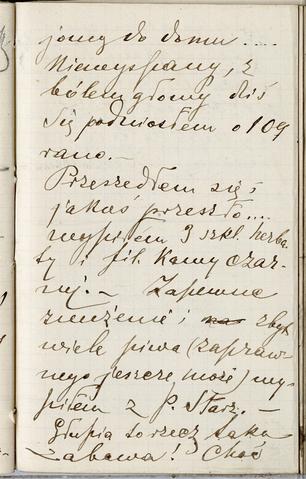 jomy do domu ....
Niewyspany, z
bólem głowy dziś
się podniosłem o 10 g
rano. —
Przeszedłem się i
jakoś przeszło....
wypiłem 3 szkl. herba-
ty i fil. kawy czar-
nej. — Zapewne
znużenie i na zbyt
wiele piwa (zapraw-
nego jeszcze może) wy-
piłem z p. Starz. —
Głupia to rzecz taka
zabawa! Choć